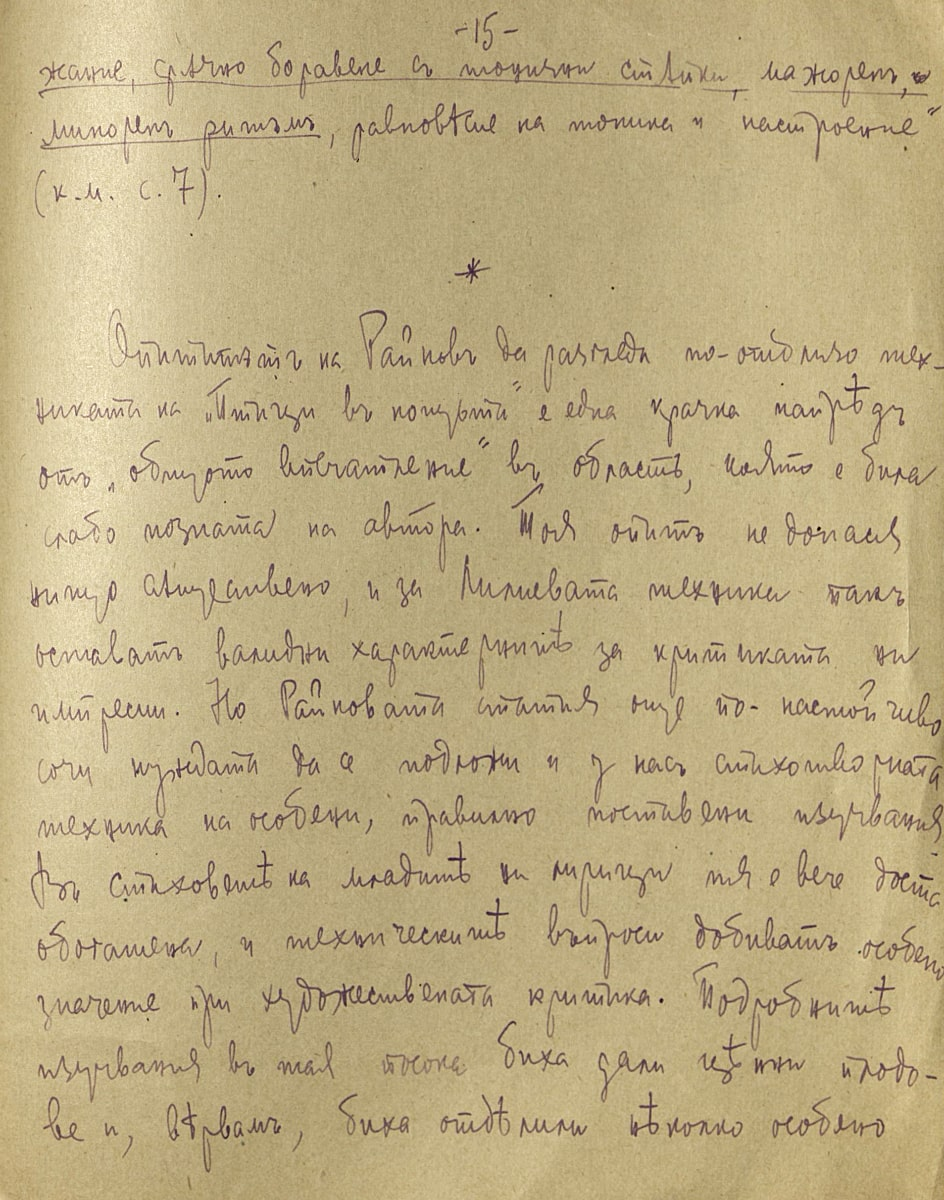 -15-
жание, сръчно боравене съ тонични стѫпки, мажоренъ, и
миноренъ ритъмъ, равновѣсие на тоника и настроение"
(к.м. с. 7).
*
Опититътъ на Райновъ да разгледа по-отблизо тех-
никата на „Птици въ нощьта" е една крачка напрѣдъ
отъ „общото впечатление" въ область, която е била
слабо позната на автора. Тоя опитъ не донася
нищо сѫществено, и за Лилиевата техника така
оставатъ валидни характернитѣ за критиката ни
импресии. Но Райновата статия още по-настойчиво
сочи нуждата да се подложи и у насъ стихотворната
техника на особени, правилно поставени изучвания
Въ стиховетѣ на младитѣ ни лирици тя е вече доста
обогатена, и техническитѣ въпроси добиватъ особено
значение при художествената критика. Подробнитѣ
изучвания въ тая посока биха дали цѣнни плодо-
ве и, вѣрвамъ, биха отдѣлили нѣколко особено